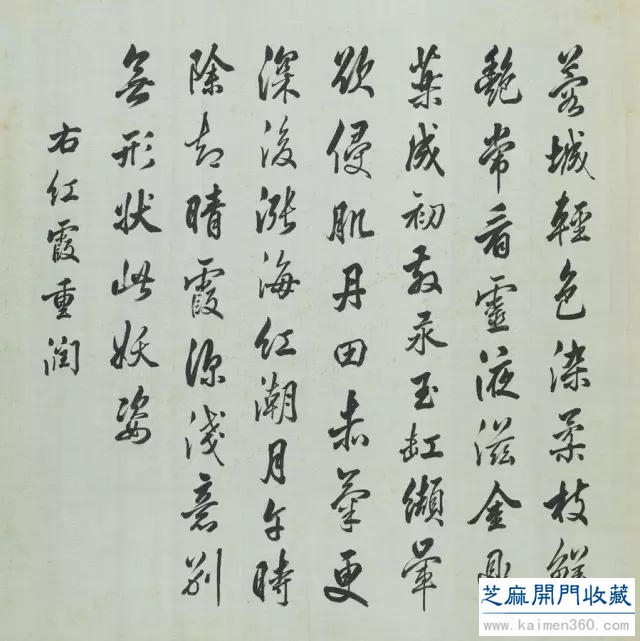 蓉城輕色染柔枝鮮
艷常看靈液滋金鼎
藥成初汞玉缸纈暈
欲侵肌丹田赤氣更
深後漲海紅潮月午時
除却晴霞深淺意別
無形狀此妖姿
右紅霞重潤
芝麻開門收藏
www.kaimen360.com